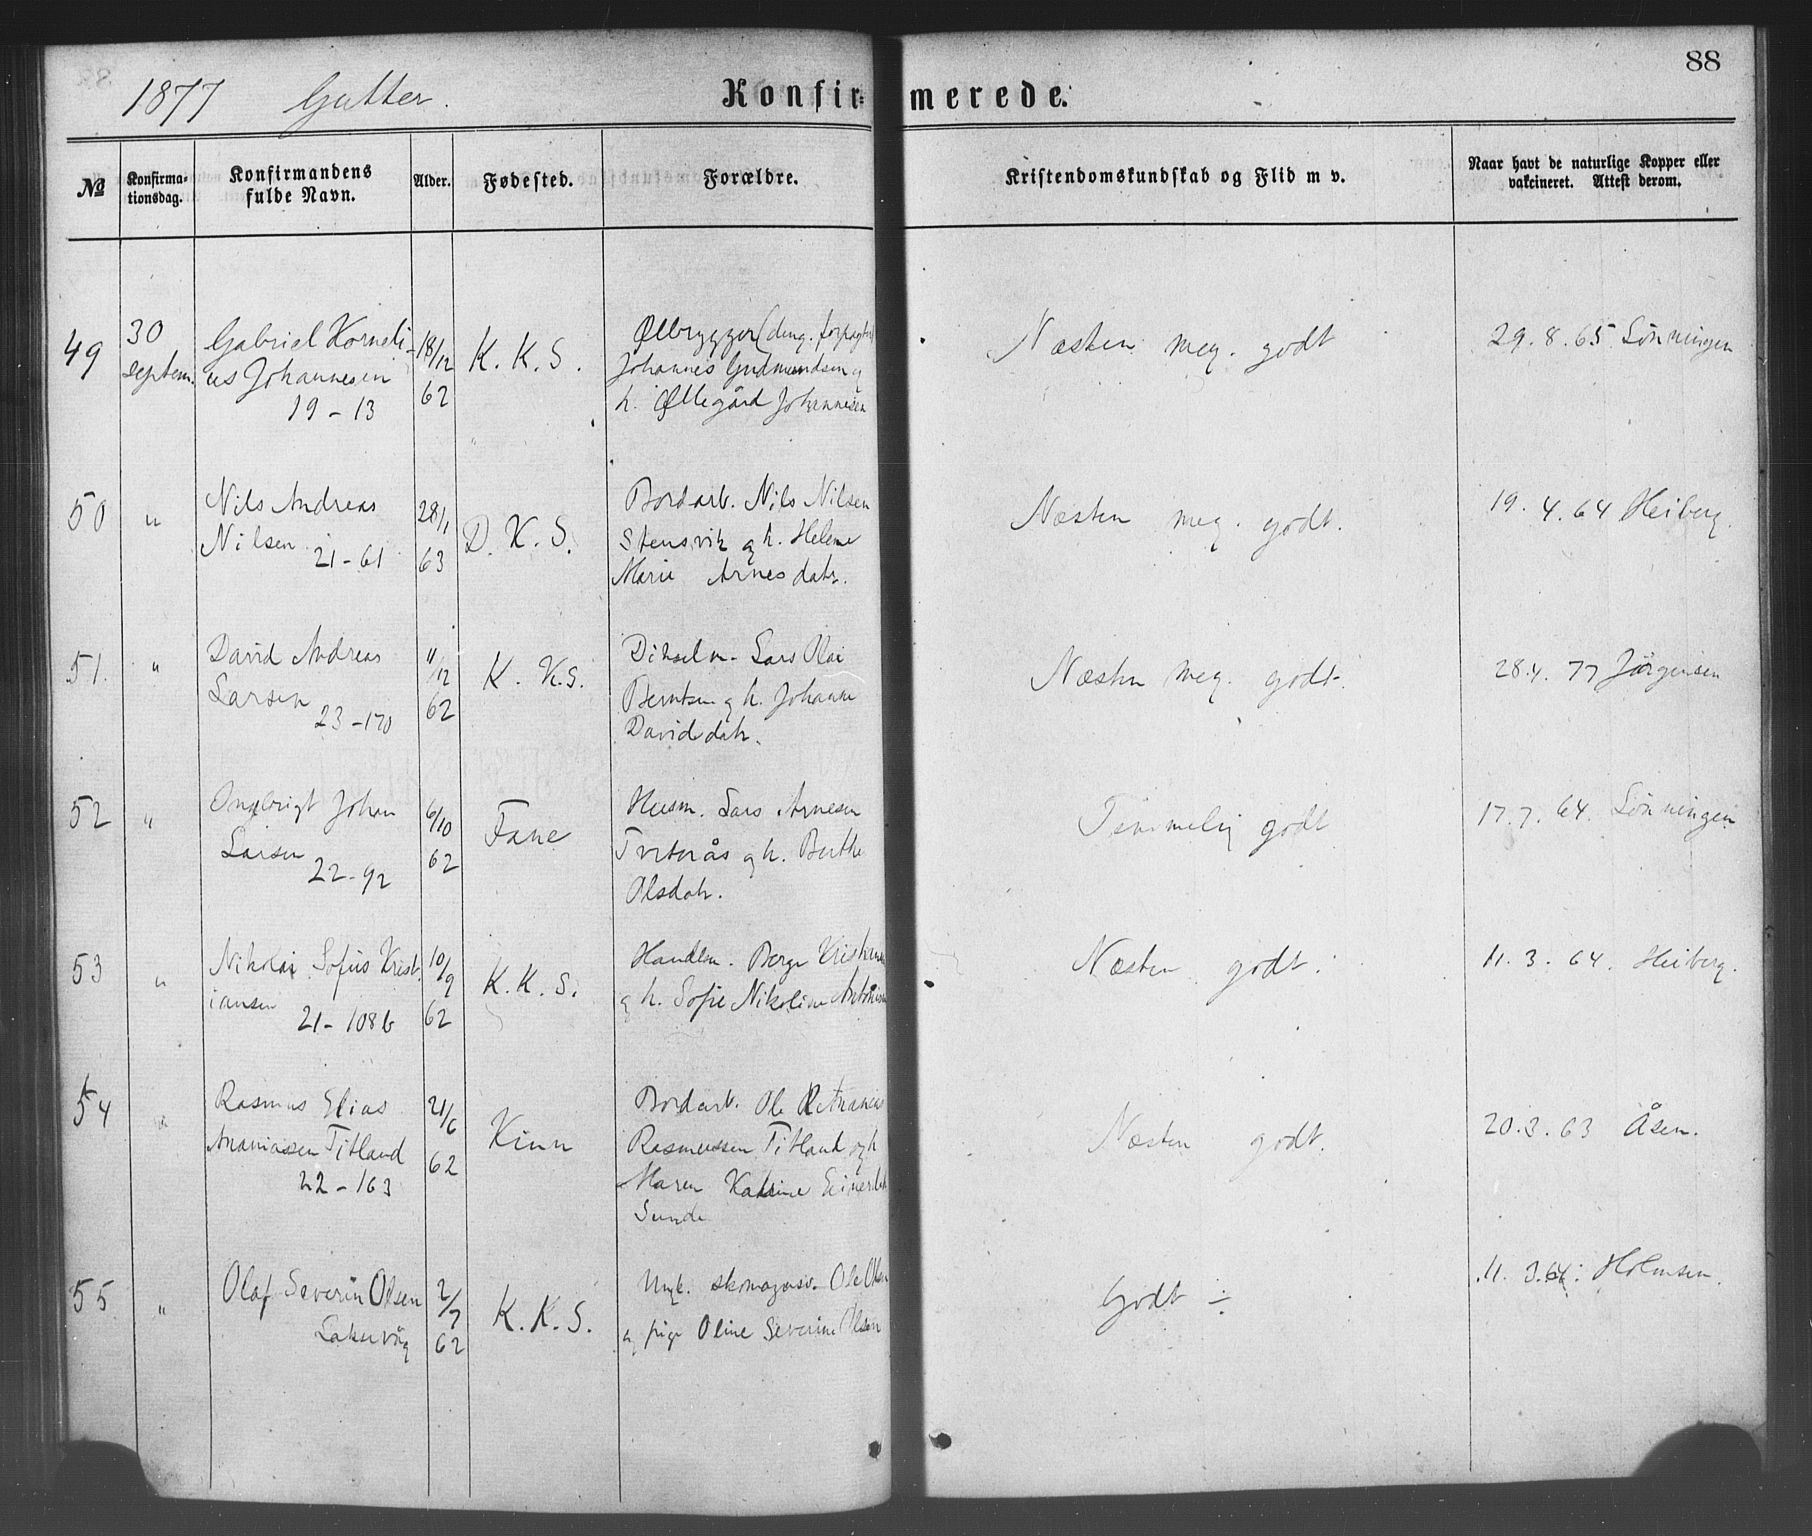 88
1877 Gutter. Konfirmerede.
№ Konfirmationsdag. Konfirmandens fulde Navn. Alder. Fødested. Forældre. Kristendomskundskab og Flid m v. Naar havt de naturlige Kopper eller vakcineret. Attest derom.
49 30 septem. Gabriel Korneli- 18/12 K. K. S. Ølbrygger (deng. forpagter) Næsten meg. godt 29. 8. 65 Lønningen
us Johannesen 62 Johannes Gudmundsen og
19 - 13 h. Øllegård Johannesen
50 " Nils Andreas 28/1 D. K. S. Bordarb. Nils Nilsen Næsten meg. godt. 19. 4. 64 Heiberg
Nilsen 21 - 61 63 Stensvik og h. Helene
Marie Arnesdatr.
51. " David Andreas 11/12 K. K. S. Lars Olai Næsten meg. godt. 28. 4. 77 Jörgensen
Larsen 62 Berntsen og h. Johanne
23 - 170 Davidsdatr.
52 " Johan 6/10 Fane Husm. Lars Arnesen Temmelig godt 17. 7. 64. Lønningen
Larsen 62 Tviterås og h. Berthe
22 - 92 Olsdatr.
53 " Nikolai Sofus Krist- 10/9 K. K. S. Handlm. Berge Kristiansen Næsten godt. 11. 3. 64. Heiberg.
iansen 62 og h. Sofie Nikoline Antonisen
21 - 108 b
54 " Rasmus Elias 21/6 Kinn Bordarb. Ole Ananias Næsten godt. 20. 3. 63 Åsen.
Ananiassen Titland 62 Rasmussen Titland og h
22 - 163 Maren Katrine
Sunde
55 " Olaf Severin Olsen 2/7 K. K. S. Ungk. skomagersv. Ole Olsen Godt ÷ 11. 3. 64. Holmsen.
Laksevåg 62 og pige Oline Severine Olsen